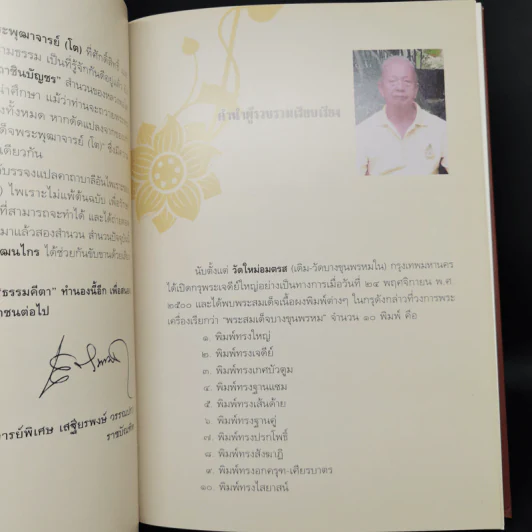 ะพุฒาจารย์ (โต) ที่ศักดิ์สิทธิ์
ามธรรม เป็นที่รู้จักกันดีอยู่แล้ว
าชินบัญชร" สำนวนของหลวงพ่อ
นำศึกษา แม้ว่าท่านจะถวาย
งทั้งหมด หากดัดแปลงจาก
ด็จพระพุฒาจารย์ (โต)" ซึ่งมี
เดียวกัน
รับรรจงแปลคาถาบาลีอัน
) ไพเราะไม่แพ้ต้นฉบับ
ที่สามารถจะทำได้ และได้
มาแล้วสองสำนวน สำนวนปัจจุบัน
ฒนไกร ได้ช่วยกันขับขาน
"ธรรมคีตา" ทำนองนี้อีก เพื่อ
าชนต่อไป
ารย์พิเศษ เสฐียรพงษ์ วรรณปก
ราชบัณฑิต
คำนำผู้รวบรวมเรียบเรียง
นับตั้งแต่ วัดใหม่อมตรส (เดิม-วัดบางขุนพรหมใน) กรุงเทพมหานคร
ได้เปิดกรุพระเจดีย์ใหญ่อย่างเป็นทางการเมื่อวันที่ ๒๔ พฤศจิกายน พ.ศ.
๒๕๐๐ และได้พบพระสมเด็จเนื้อผงพิมพ์ต่างๆ ในกรุดังกล่าวที่วงการพระ
เครื่องเรียกว่า "พระสมเด็จบางขุนพรหม" จำนวน ๑๐ พิมพ์ คือ
๑. พิมพ์ทรงใหญ่
๒. พิมพ์ทรงเจดีย์
๓. พิมพ์ทรงเกศบัวตูม
๔. พิมพ์ทรงฐานแซม
๕. พิมพ์ทรงเส้นด้าย
๖. พิมพ์ทรงฐานคู่
๗. พิมพ์ทรงปรกโพธิ์
๘. พิมพ์ทรงสังฆาฏิ
๙. พิมพ์ทรงอกครุฑ-เศียรบาตร
๑๐. พิมพ์ทรงไสยาสน์